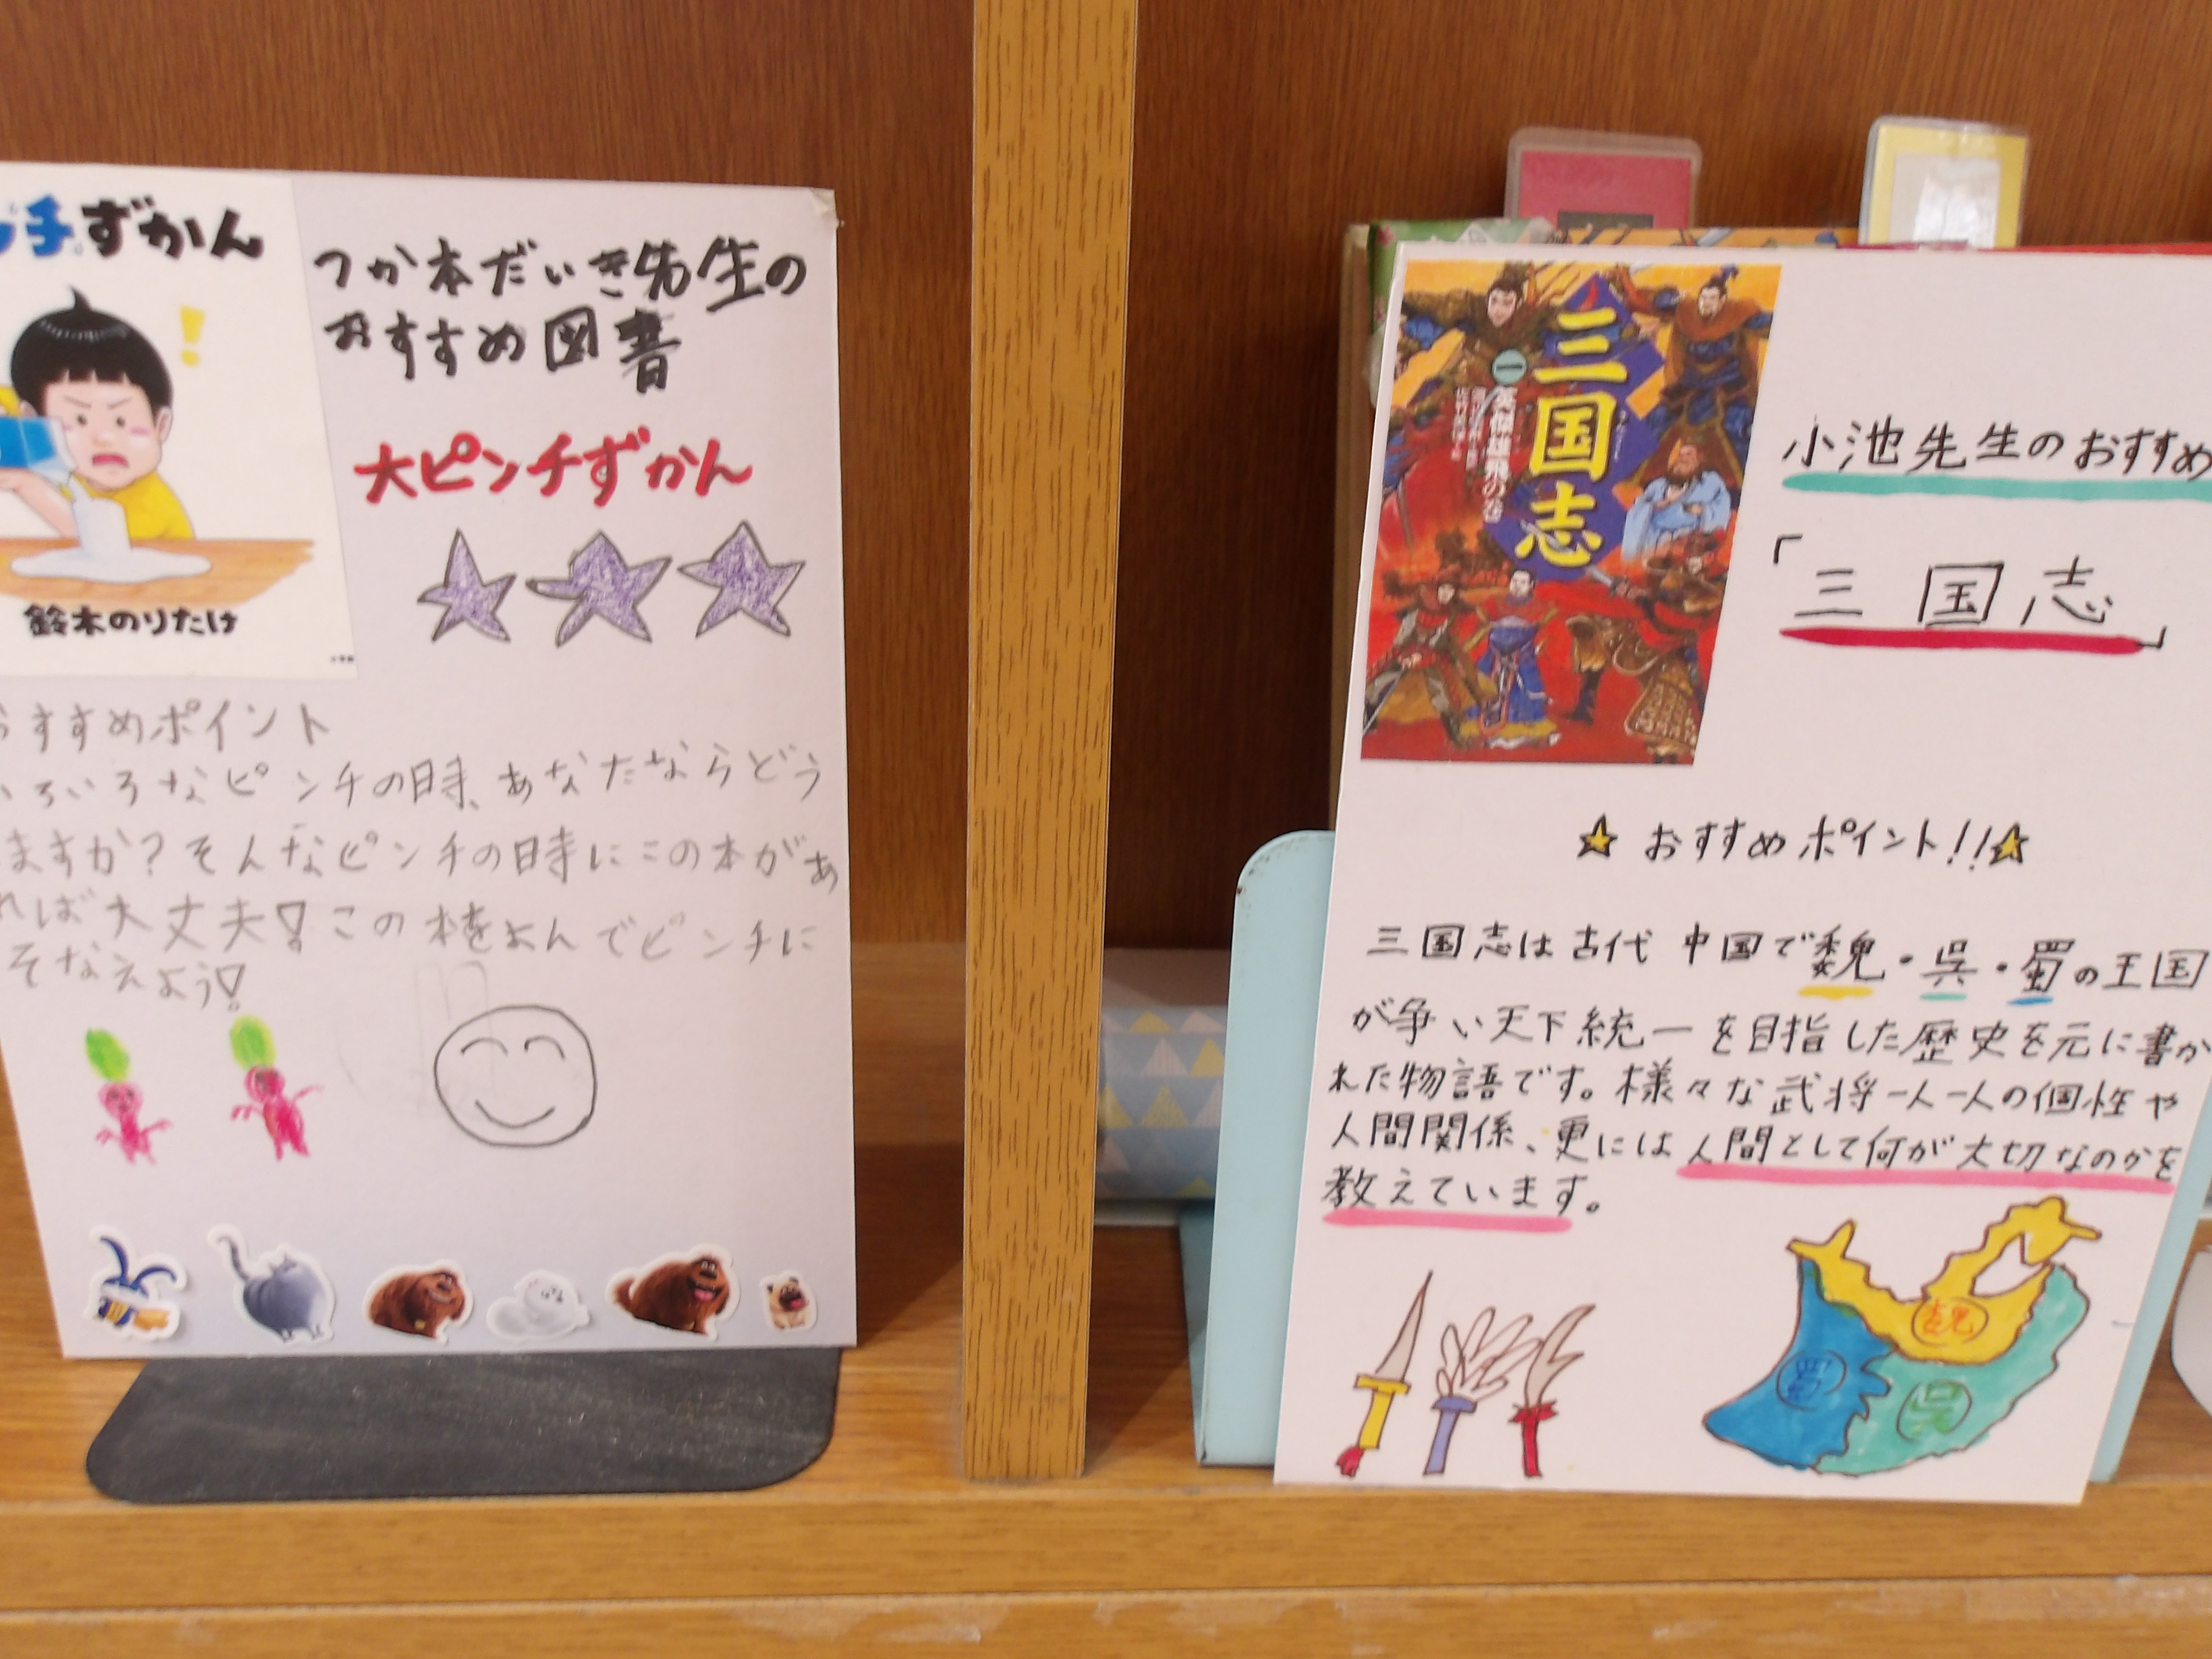 ンチずかん
鈴木のりたけ
つか本だいき先生の
おすすめ図書
大ピンチずかん
おすすめポイント
いろいろなピンチの時、あなたならどう
ますか？そんなピンチの時にこの本があ
れば大丈夫！この本をよんでピンチに
そなえよう！
三国志
一
英雄雄飛の巻
小池先生のおすすめ
「三国志」
☆おすすめポイント!!☆
三国志は古代中国で魏・呉・蜀の王国
が争い天下統一を目指した歴史を元に書か
れた物語です。様々な武将一人一人の個性や
人間関係、更には人間として何が大切なのかを
教えています。
魏
蜀
呉